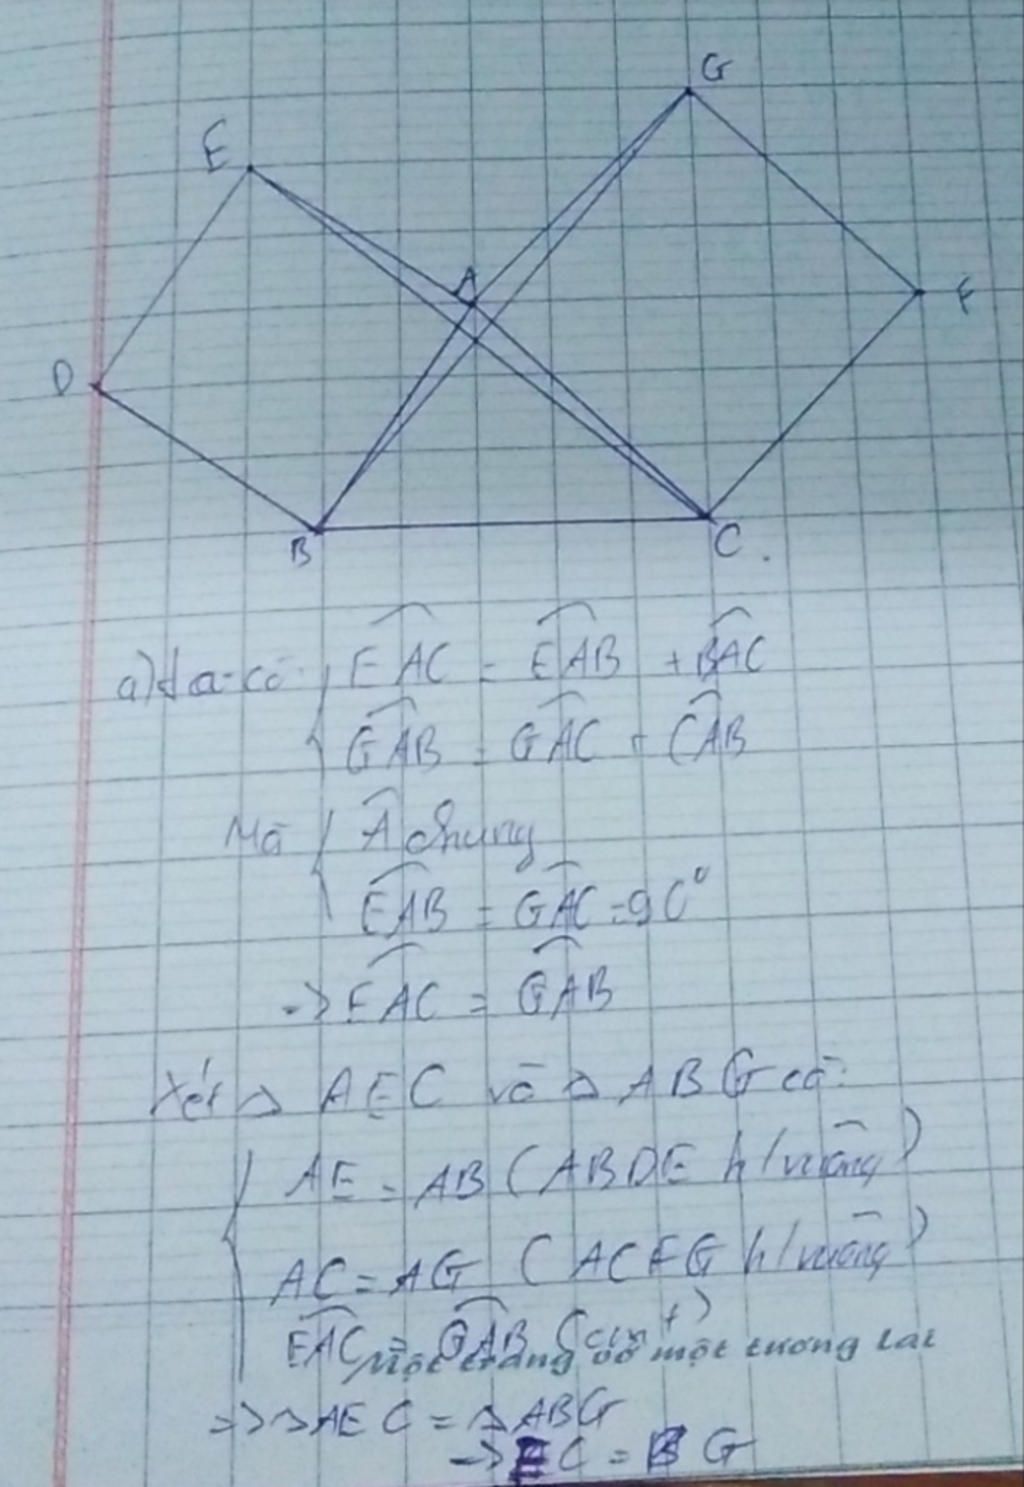 G
E
A
F
D
B
C
a) Ta có { EAC = EAB + BAC
GAB = GAC + CAB
Mà { A chung
EAB = GAC = 90°
-> EAC = GAB
Xét Δ AEC và Δ ABG có:
AE = AB ( ABDE h/vuông )
AC = AG ( ACFG h/vuông )
EAC = GAB ( cmt )
Một trang vở một tương lai
=> Δ AEC = Δ ABG
-> EC = BG